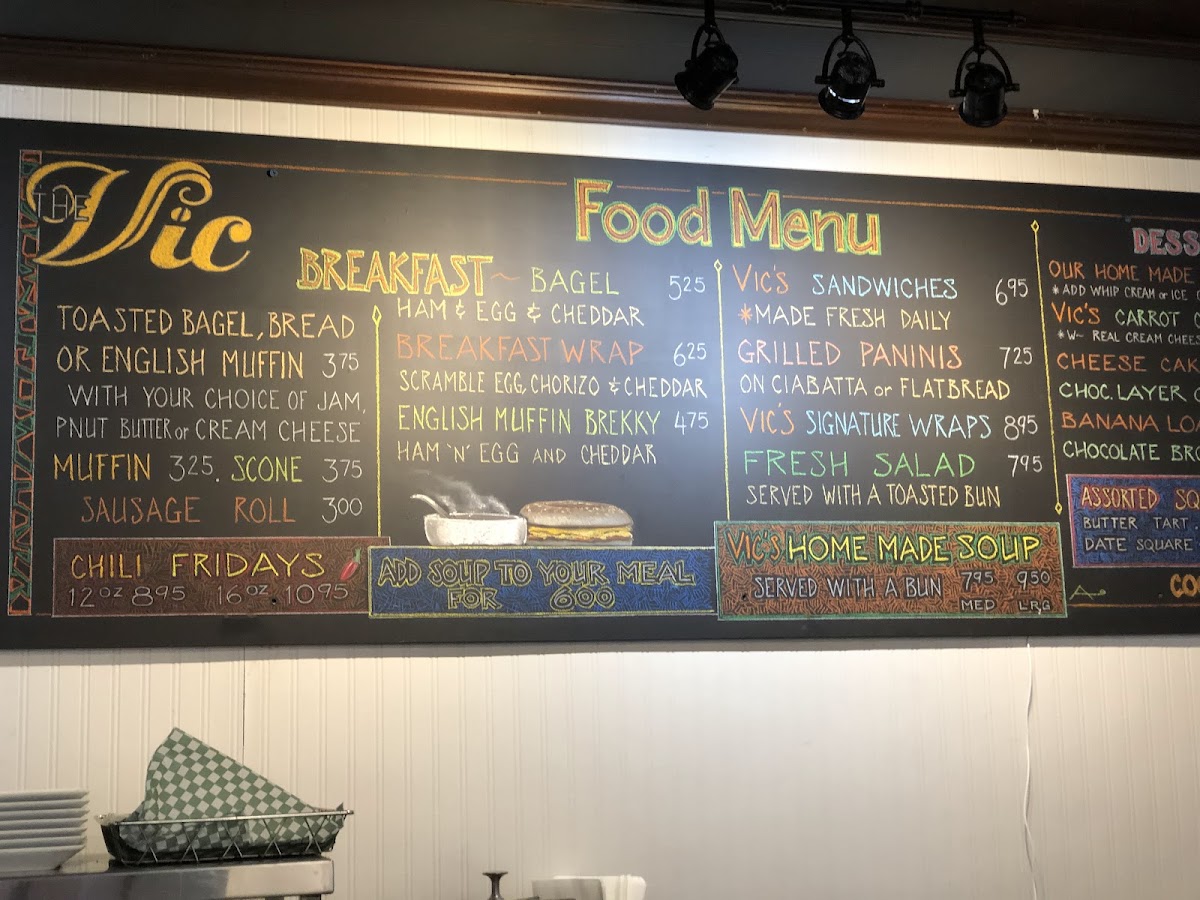 THE Vic
Food Menu
BREAKFAST~
TOASTED BAGEL, BREAD
OR ENGLISH MUFFIN 375
WITH YOUR CHOICE OF JAM,
PNUT BUTTER or CREAM CHEESE
MUFFIN 325. SCONE 375
SAUSAGE ROLL 300
CHILI FRIDAYS
12oz 895 16oz 1095
BAGEL 525
HAM & EGG & CHEDDAR
BREAKFAST WRAP 625
SCRAMBLE EGG, CHORIZO & CHEDDAR
ENGLISH MUFFIN BREKKY 475
HAM 'N' EGG AND CHEDDAR
ADD SOUP TO YOUR MEAL
FOR 600
VIC'S SANDWICHES 695
*MADE FRESH DAILY
GRILLED PANINIS 725
ON CIABATTA or FLATBREAD
VIC'S SIGNATURE WRAPS 895
FRESH SALAD 795
SERVED WITH A TOASTED BUN
VIC'S HOME MADE SOUP
SERVED WITH A BUN 795 950
MED LRG
DESS
OUR HOME MADE
*ADD WHIP CREAM or ICE
VIC'S CARROT
*W~ REAL CREAM CHEES
CHEESE CAK
CHOC. LAYER
BANANA LOA
CHOCOLATE BRO
ASSORTED SQ
BUTTER TART
DATE SQUARE
CO